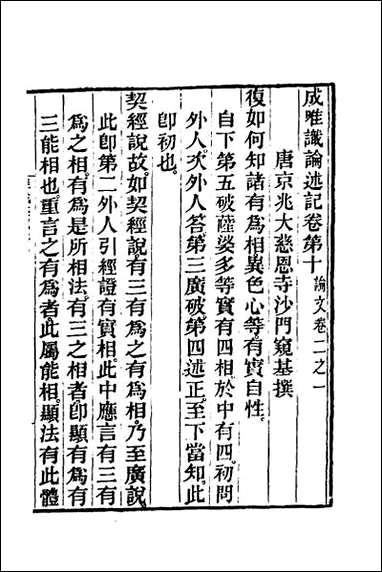 成唯識論述記卷第十 論文卷二之一
唐京兆大慈恩寺沙門窺基撰
復如何知諸有爲相異色心等有實自性。
自下第五破薩婆多等實有四相於中有四。初問
外人。次外人答。第三廣破。第四述正。至下當知。此
卽初也。
契經說故。如契經說。有三有爲之有爲相。乃至廣說。
此卽第二外人引經證有實相。此中應言有三有
爲之相。有爲是所相法。有三之相者。卽顯有爲有
三能相也。重言之有爲者。此屬能相。顯法有此體